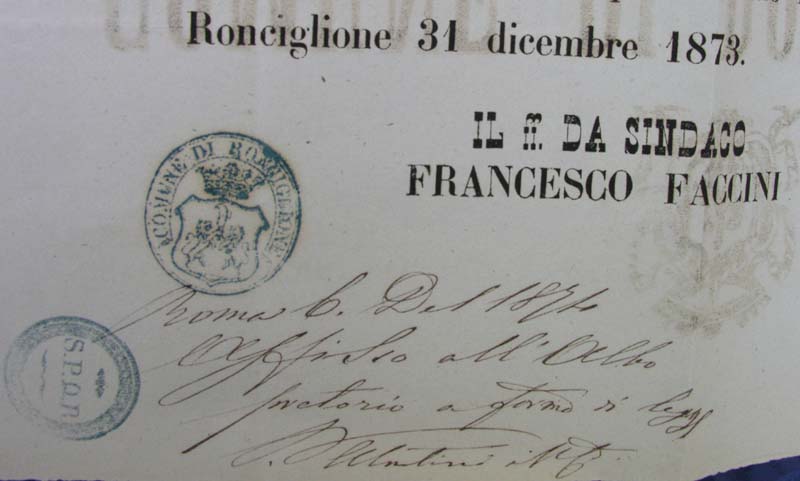 Ronciglione 31 dicembre 1873.
IL ff. DA SINDACO
FRANCESCO FACCINI
COMUNE DI RONCIGLIONE
Roma 6. Del 1874
Affisso all'Albo
pretorio a forma di legge
S.P.Q.R.